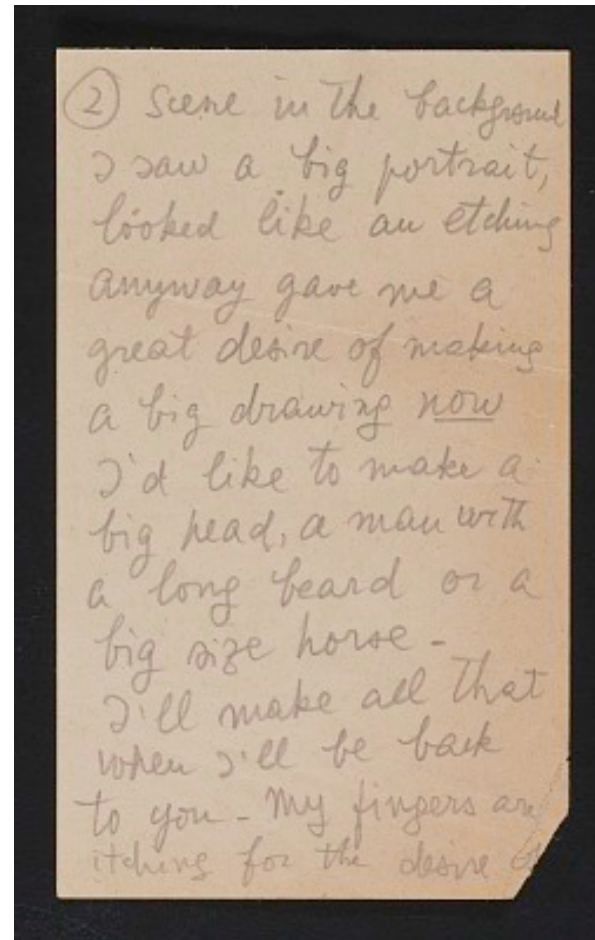 ② Scene in the background
I saw a big portrait,
looked like an etching
anyway gave me a
great desire of making
a big drawing now
I'd like to make a
big head, a man with
a long beard or a
big size horse -
I'll make all that
when I'll be back
to you - My fingers are
itching for the desire of